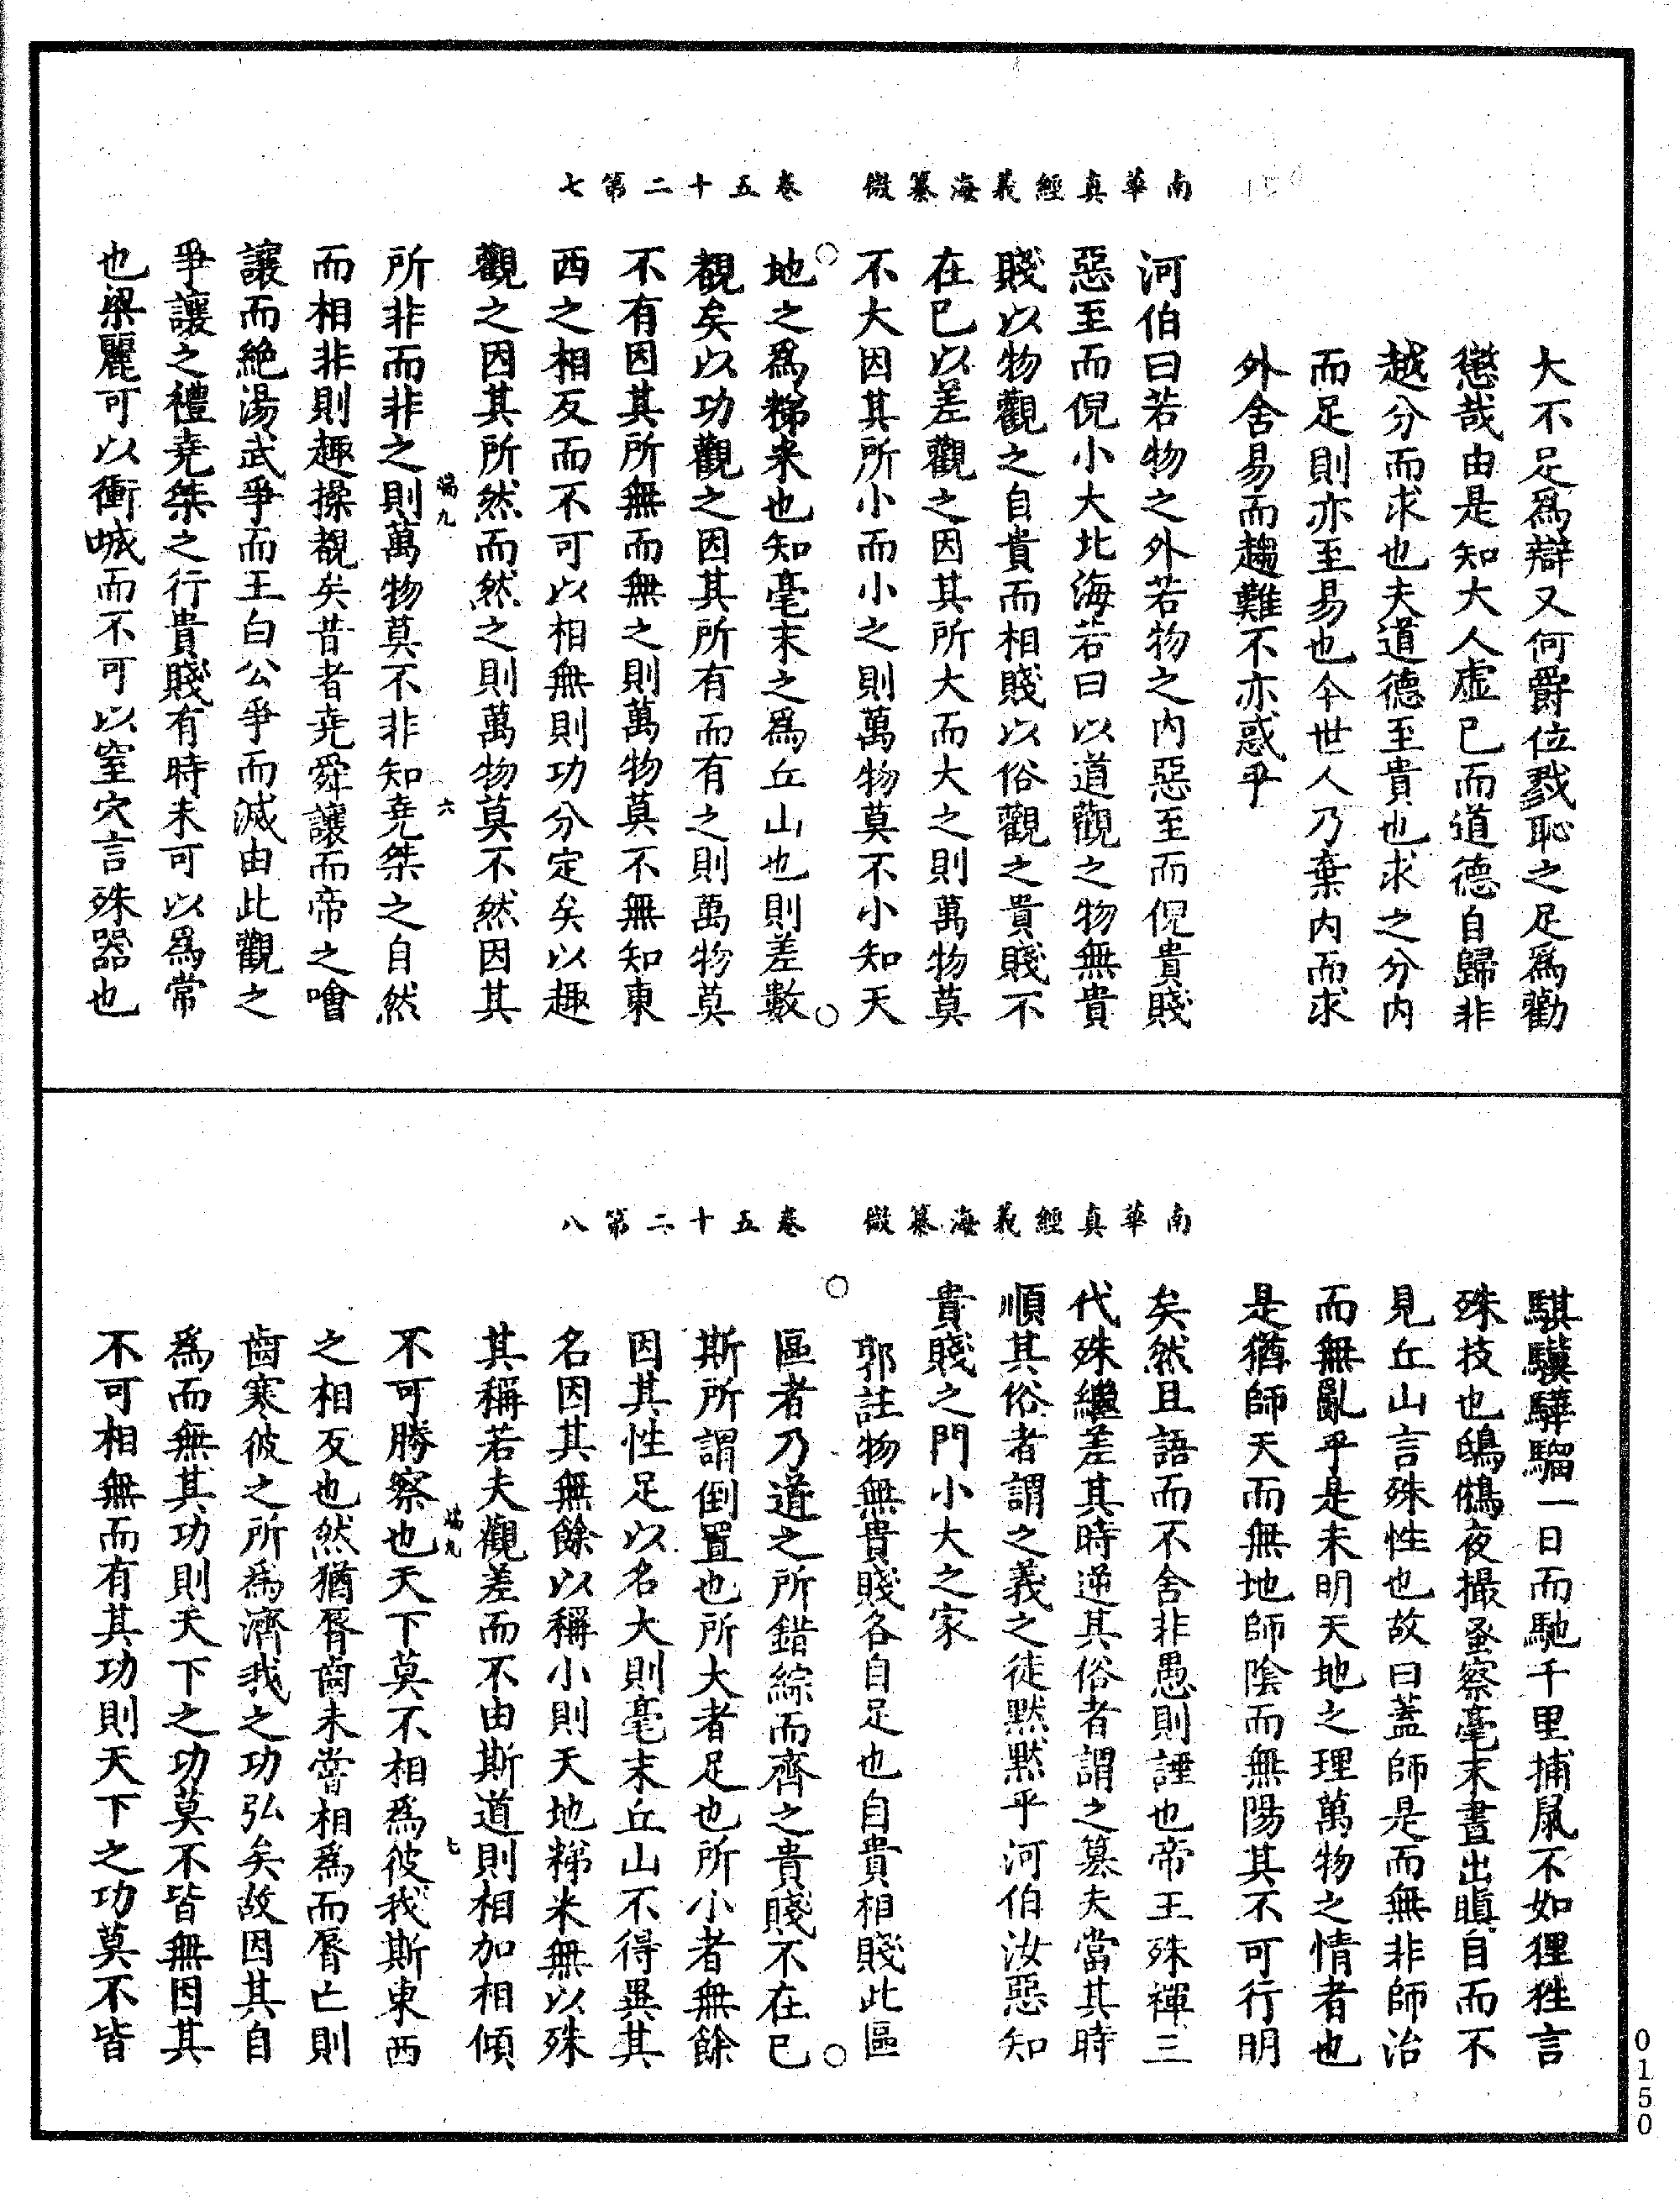 南華真經義海纂微　卷五十二第七
大不足爲辯又何爵位戮恥之足爲勸
懲哉由是知大人虛已而道德自歸非
越分而求也夫道德至貴也求之分内
而足則亦至易也今世人乃棄内而求
外舍易而趨難不亦惑乎
河伯曰若物之外若物之内惡至而倪貴賤
惡至而倪小大北海若曰以道觀之物無貴
賤以物觀之自貴而相賤以俗觀之貴賤不
在已以差觀之因其所大而大之則萬物莫
不大因其所小而小之則萬物莫不小知天
地之爲稊米也知毫末之爲丘山也則差數
覩矣以功觀之因其所有而有之則萬物莫
不有因其所無而無之則萬物莫不無知東
西之相反而不可以相無則功分定矣以趣
觀之因其所然而然之則萬物莫不然因其
端九　六
所非而非之則萬物莫不非知堯桀之自然
而相非則趣操覩矣昔者堯舜讓而帝之噲
讓而絶湯武爭而王白公爭而滅由此觀之
爭讓之禮堯桀之行貴賤有時未可以爲常
也梁麗可以衝城而不可以窒穴言殊器也
南華真經義海纂微　卷五十二第八
騏驥驊騮一日而馳千里捕鼠不如狸狌言
殊技也鴟鵂夜撮蚤察毫末晝出瞋目而不
見丘山言殊性也故曰蓋師是而無非師治
而無亂乎是未明天地之理萬物之情者也
是猶師天而無地師陰而無陽其不可行明
矣然且語而不舍非愚則誣也帝王殊禪三
代殊繼差其時逆其俗者謂之篡夫當其時
順其俗者謂之義之徒黙黙乎河伯汝惡知
貴賤之門小大之家
郭註物無貴賤各自足也自貴相賤此區
區者乃道之所錯綜而齊之貴賤不在已
斯所謂倒置也所大者足也所小者無餘
因其性足以名大則毫末丘山不得異其
名因其無餘以稱小則天地稊米無以殊
其稱若夫觀差而不由斯道則相加相傾
端九　七
不可勝察也天下莫不相爲彼我斯東西
之相反也然猶脣齒未嘗相爲而脣亡則
齒寒彼之所爲濟我之功弘矣故因其自
爲而無其功則天下之功莫不皆無因其
不可相無而有其功則天下之功莫不皆
0150